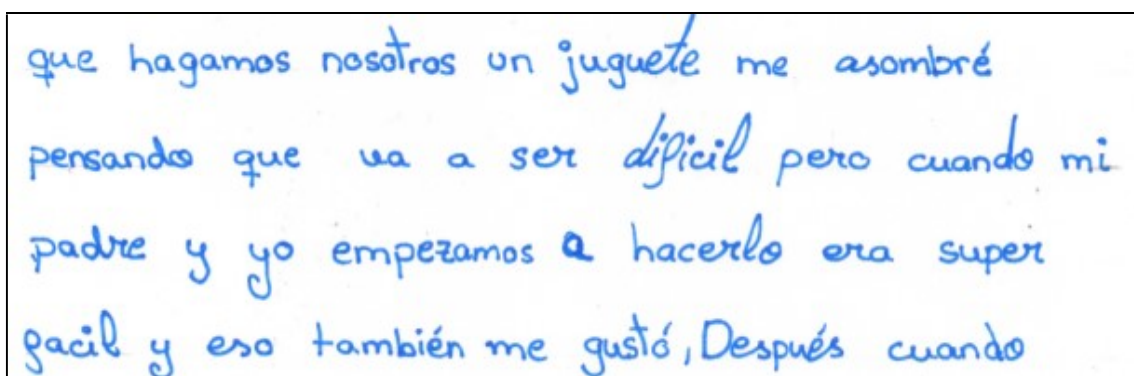 que hagamos nosotros un juguete me asombré
pensando que va a ser dificil pero cuando mi
padre y yo empezamos a hacerlo era super
facil y eso también me gustó, Después cuando